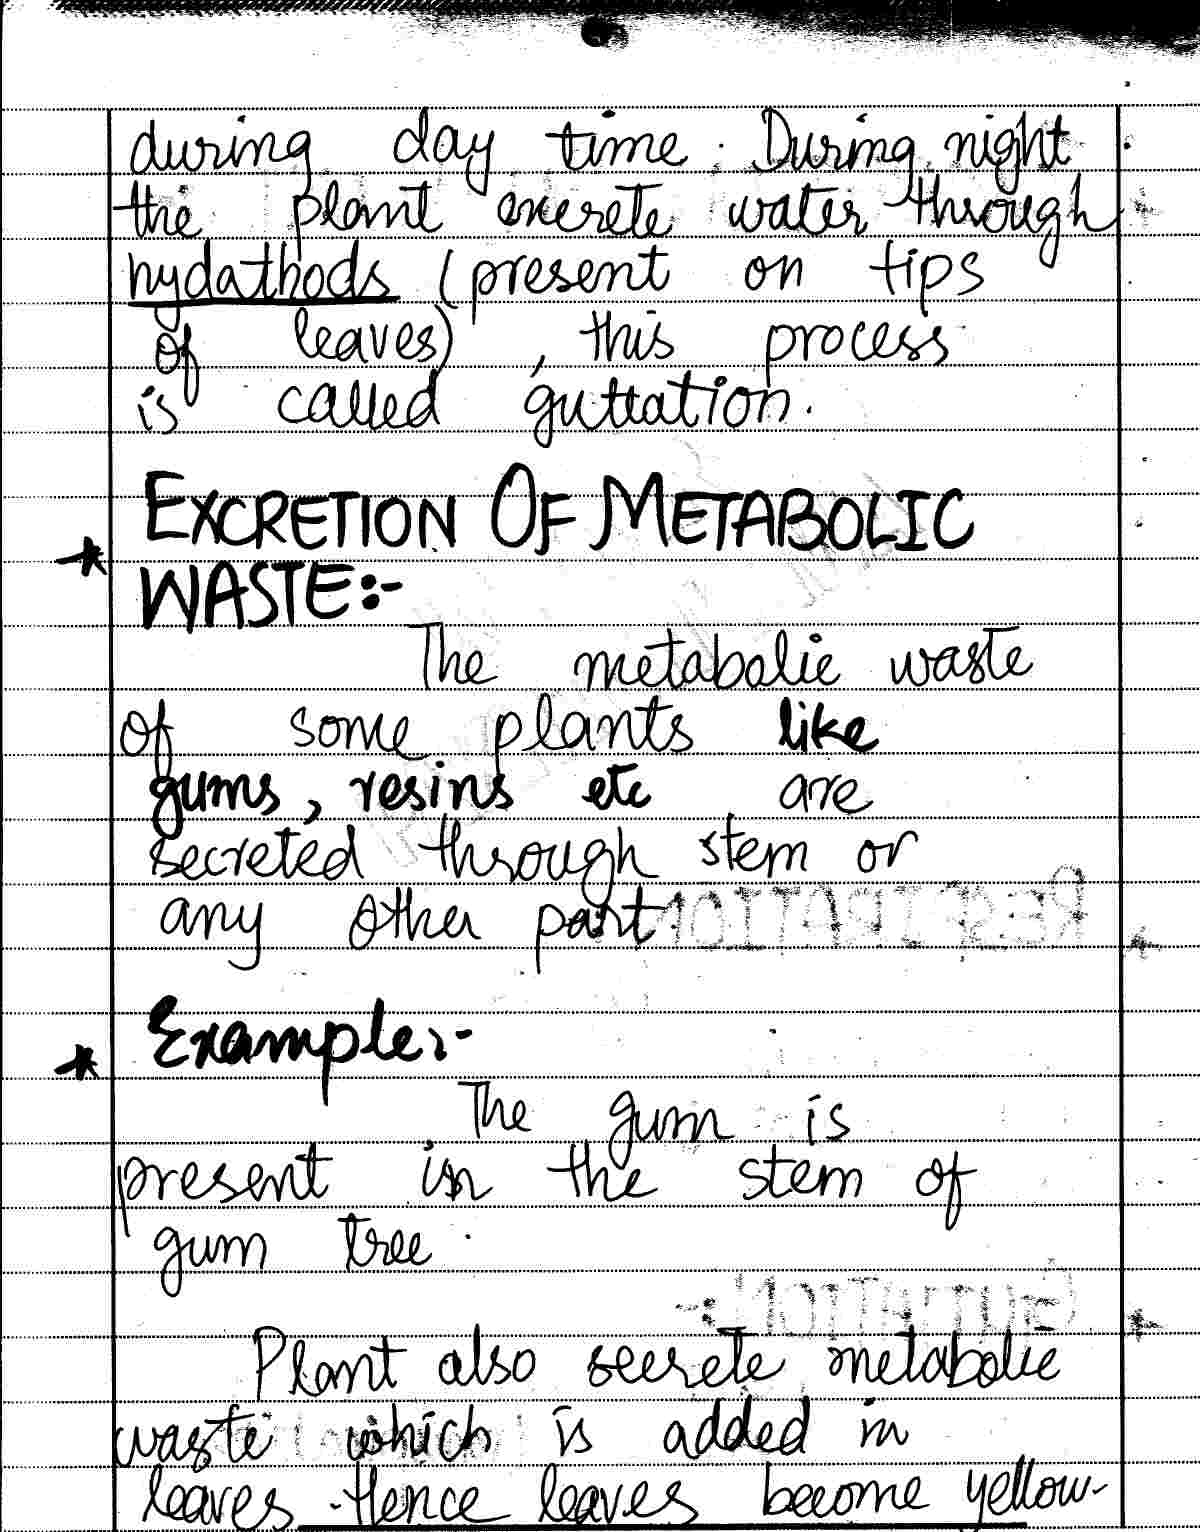 during day time. During night
the plant excrete water through
hydathods (present on tips
of leaves), this process
is called guttation.
EXCRETION OF METABOLIC
WASTE:-
The metabolic waste
of some plants like
gums, resins etc are
secreted through stem or
any other part.
RESPIRATION
Example:-
The gum is
present in the stem of
gum tree.
GUTTATION:-
Plant also secrete metabolic
waste which is added in
leaves. Hence leaves become yellow-